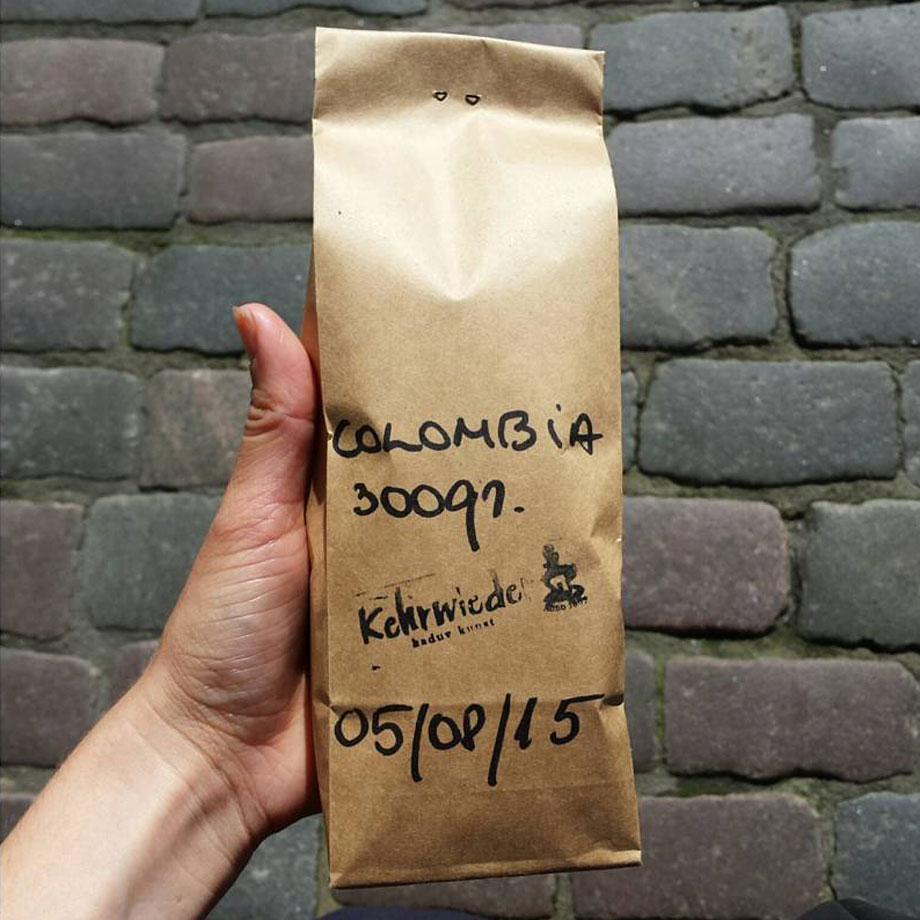 COLOMBiA
300gr.
Kehrwieder
kaduv kunst
05/08/15